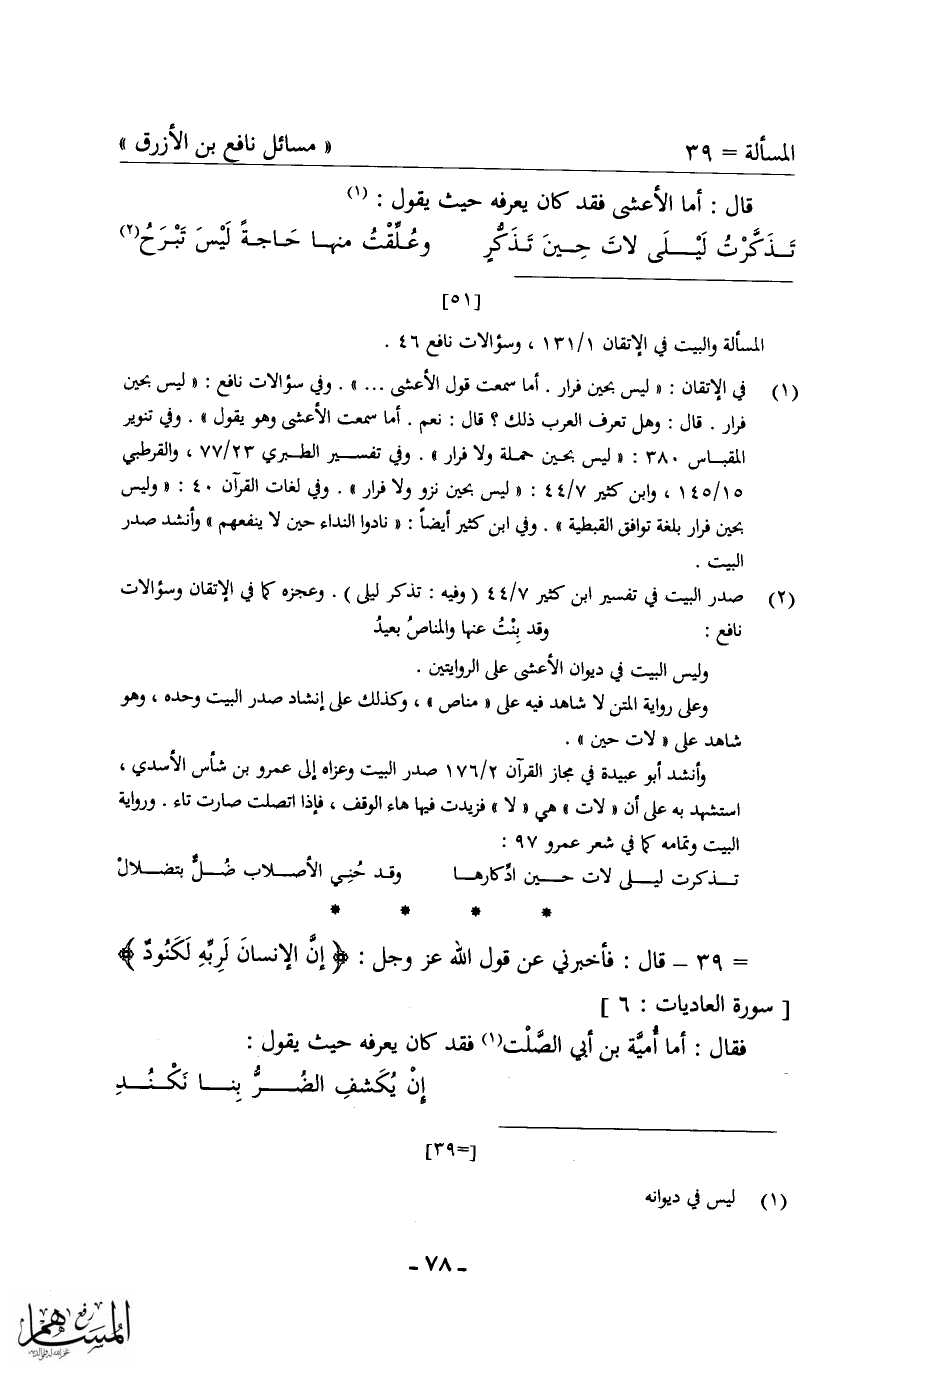 المسألة = ٣٩ « مسائل نافع بن الأزرق »
قال : أما الأعشى فقد كان يعرفه حيث يقول : (١)
تَذَكَّرْتُ لَيْلَى لاتَ حِينَ تَذَكُّرٍ وعُلِّقْتُ منها حَاجةً لَيْسَ تَبْرَحُ(٢)
[٥١]
المسألة والبيت في الإتقان ١٣١/١ ، وسؤالات نافع ٤٦ .
(١) في الإتقان : « ليس بحين فرار . أما سمعت قول الأعشى ... » . وفي سؤالات نافع : « ليس بحين
فرار . قال : وهل تعرف العرب ذلك ؟ قال : نعم . أما سمعت الأعشى وهو يقول » . وفي تنوير
المقباس ٣٨٠ : « ليس بحين حملة ولا فرار » . وفي تفسير الطبري ٧٧/٢٣ ، والقرطبي
١٤٥/١٥ ، وابن كثير ٤٤/٧ : « ليس بحين نزو ولا فرار » . وفي لغات القرآن ٤٠ : « وليس
بحين فرار بلغة توافق القبطية » . وفي ابن كثير أيضاً : « نادوا النداء حين لا ينفعهم » وأنشد صدر
البيت .
(٢) صدر البيت في تفسير ابن كثير ٤٤/٧ ( وفيه : تذكر ليلى ) . وعجزه كما في الإتقان وسؤالات
نافع : وقد بِنْتُ عنها والمناصُ بعيدُ
وليس البيت في ديوان الأعشى على الروايتين .
وعلى رواية المتن لا شاهد فيه على « مناص » ، وكذلك على إنشاد صدر البيت وحده ، وهو
شاهد على « لات حين » .
وأنشد أبو عبيدة في مجاز القرآن ١٧٦/٢ صدر البيت وعزاه إلى عمرو بن شأس الأسدي ،
استشهد به على أن « لات » هي « لا » فزيدت فيها هاء الوقف ، فإذا اتصلت صارت تاء . ورواية
البيت وتمامه كما في شعر عمرو ٩٧ :
تـذكرت ليـلى لات حـين ادّكارهـا وقـد حُنِي الأصـلاب ضُـلٌّ بتضـلالْ
* * * *
= ٣٩ ــ قال : فأخبرني عن قول الله عز وجل : ﴿ إنَّ الإنسانَ لَرِبِّهِ لَكَنُودٌ ﴾
[ سورة العاديات : ٦ ]
فقال : أما أُميَّة بن أبي الصَّلْت(١) فقد كان يعرفه حيث يقول :
إنْ يُكَشفِ الضُرُّ بِنا نَكْنُدِ
[=٣٩]
(١) ليس في ديوانه
ـ ٧٨ ـ